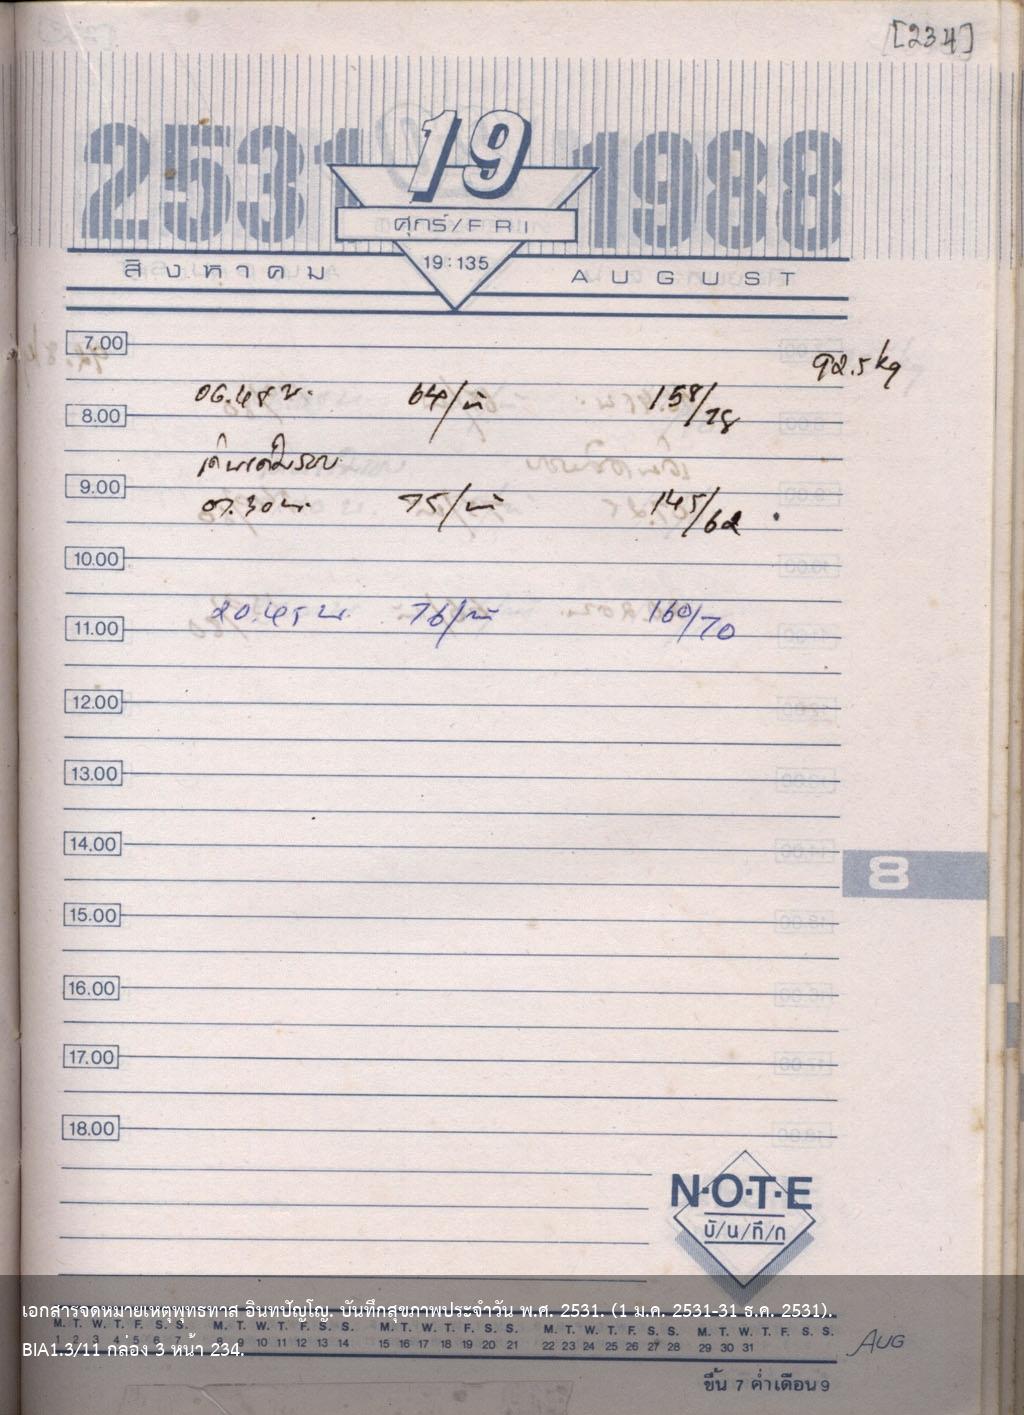 [234]
2531 19 1988
ศุกร์/FRI
สิงหาคม 19:135 AUGUST
7.00
92.5 kg
06.45 น. 64/น 158/78
8.00
เดินเต็มรอบ
9.00
07.30 น. 75/น 145/62
10.00
20.45 น. 76/น 160/70
11.00
12.00
13.00
14.00
8
15.00
16.00
17.00
18.00
N·O·T·E
บั/น/ทึ/ก
เอกสารจดหมายเหตุพุทธทาส อินทปัญโญ. บันทึกสุขภาพประจำวัน พ.ศ. 2531. (1 ม.ค. 2531-31 ธ.ค. 2531).
M. T. W. T. F. S. S. M. T. W. T. F. S. S. M. T. W. T. F. S. S. M. T. W. T. F. S. S. M. T. W. T. F. S. S.
1 2 3 4 5 6 7 8 9 10 11 12 13 14 15 16 17 18 19 20 21 22 23 24 25 26 27 28 29 30 31
AUG
BIA1.3/11 กล่อง 3 หน้า 234.
ขึ้น 7 ค่ำเดือน 9